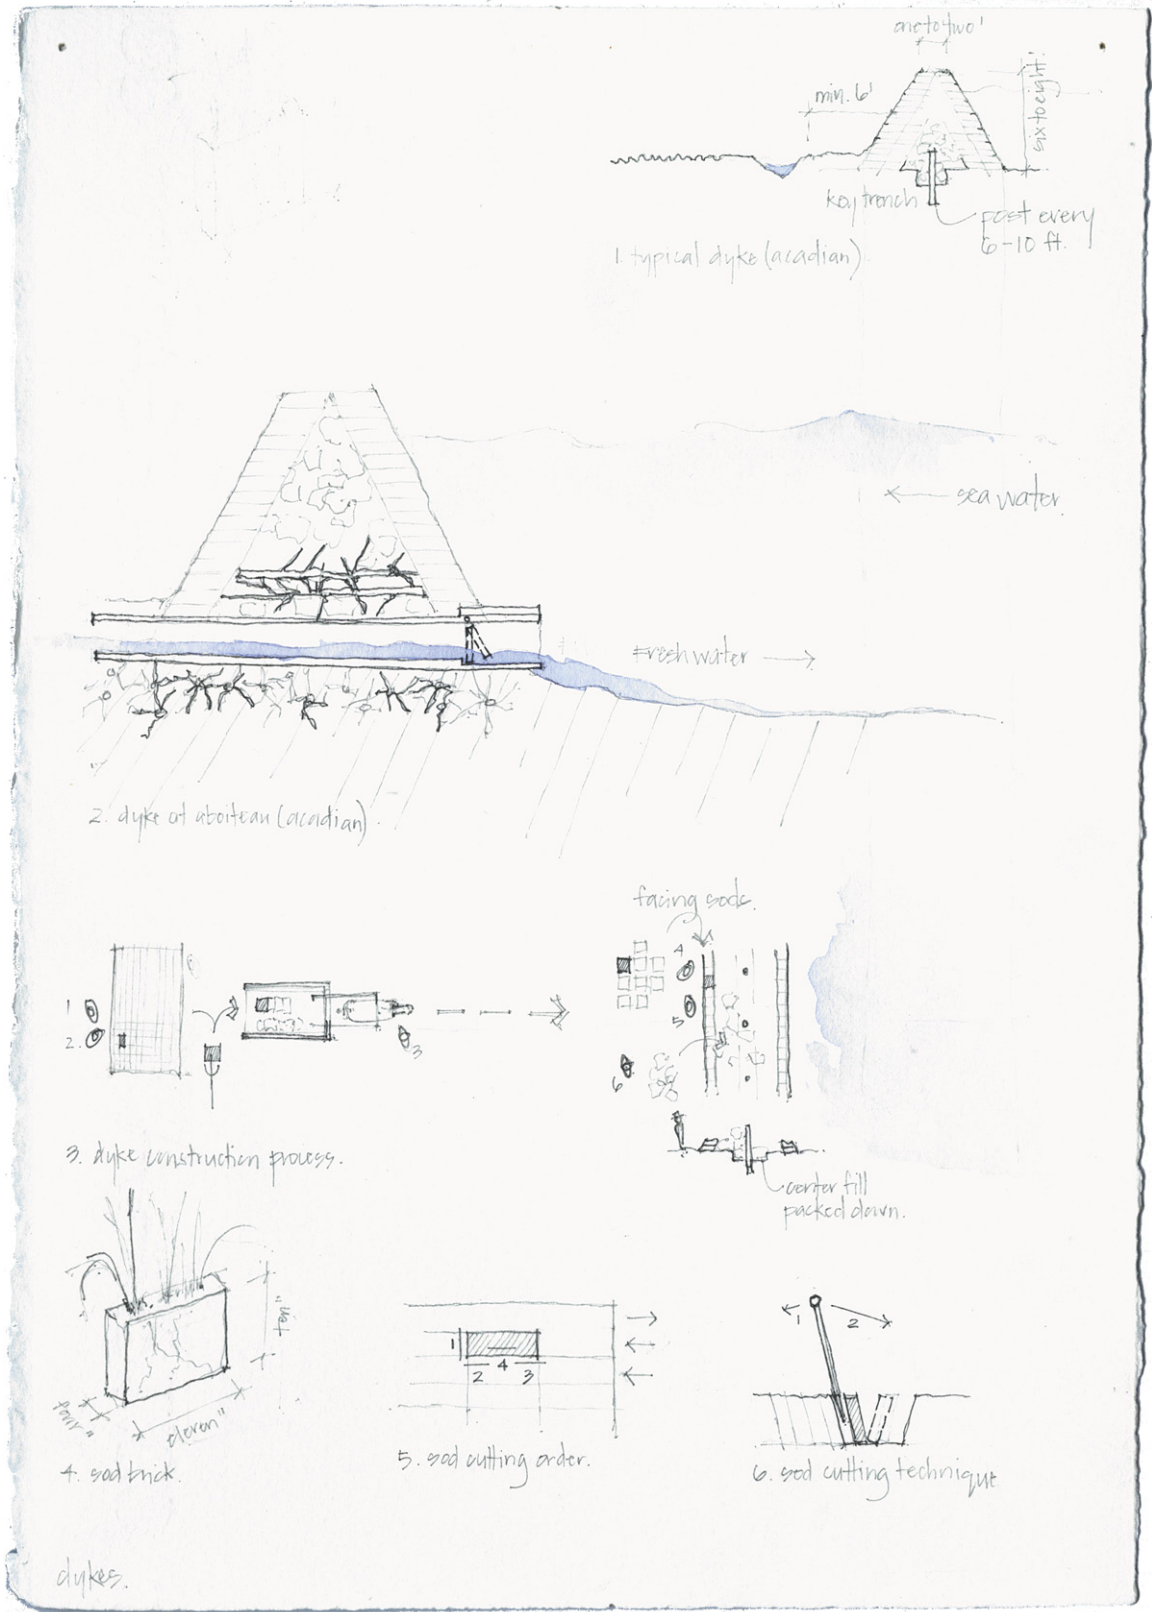 one to two'
min. 6'
six to eight'
key trench
post every
6-10 ft.
1. typical dyke (acadian)
sea water.
Fresh water
2. dyke at aboiteau (acadian)
facing sods.
4
1
2.
5
3
6
3. dyke construction process.
center fill
packed down.
ten"
four"
eleven"
4. sod brick.
1
2 4 3
5. sod cutting order.
1 2
6. sod cutting technique
dykes.